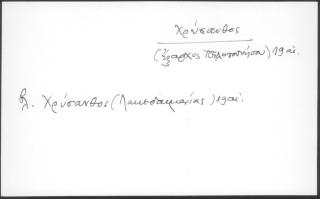 Χρύσανθος
(Ἔξαρχος Πελοποννήσου) 19 αἰ.
βλ. Χρύσανθος (Λακεδαιμονίας) 19 αἰ.